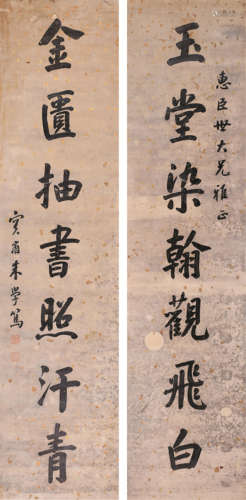 惠臣世大兄雅正
玉堂染翰觀飛白
金匱抽書照汗青
朱學篤